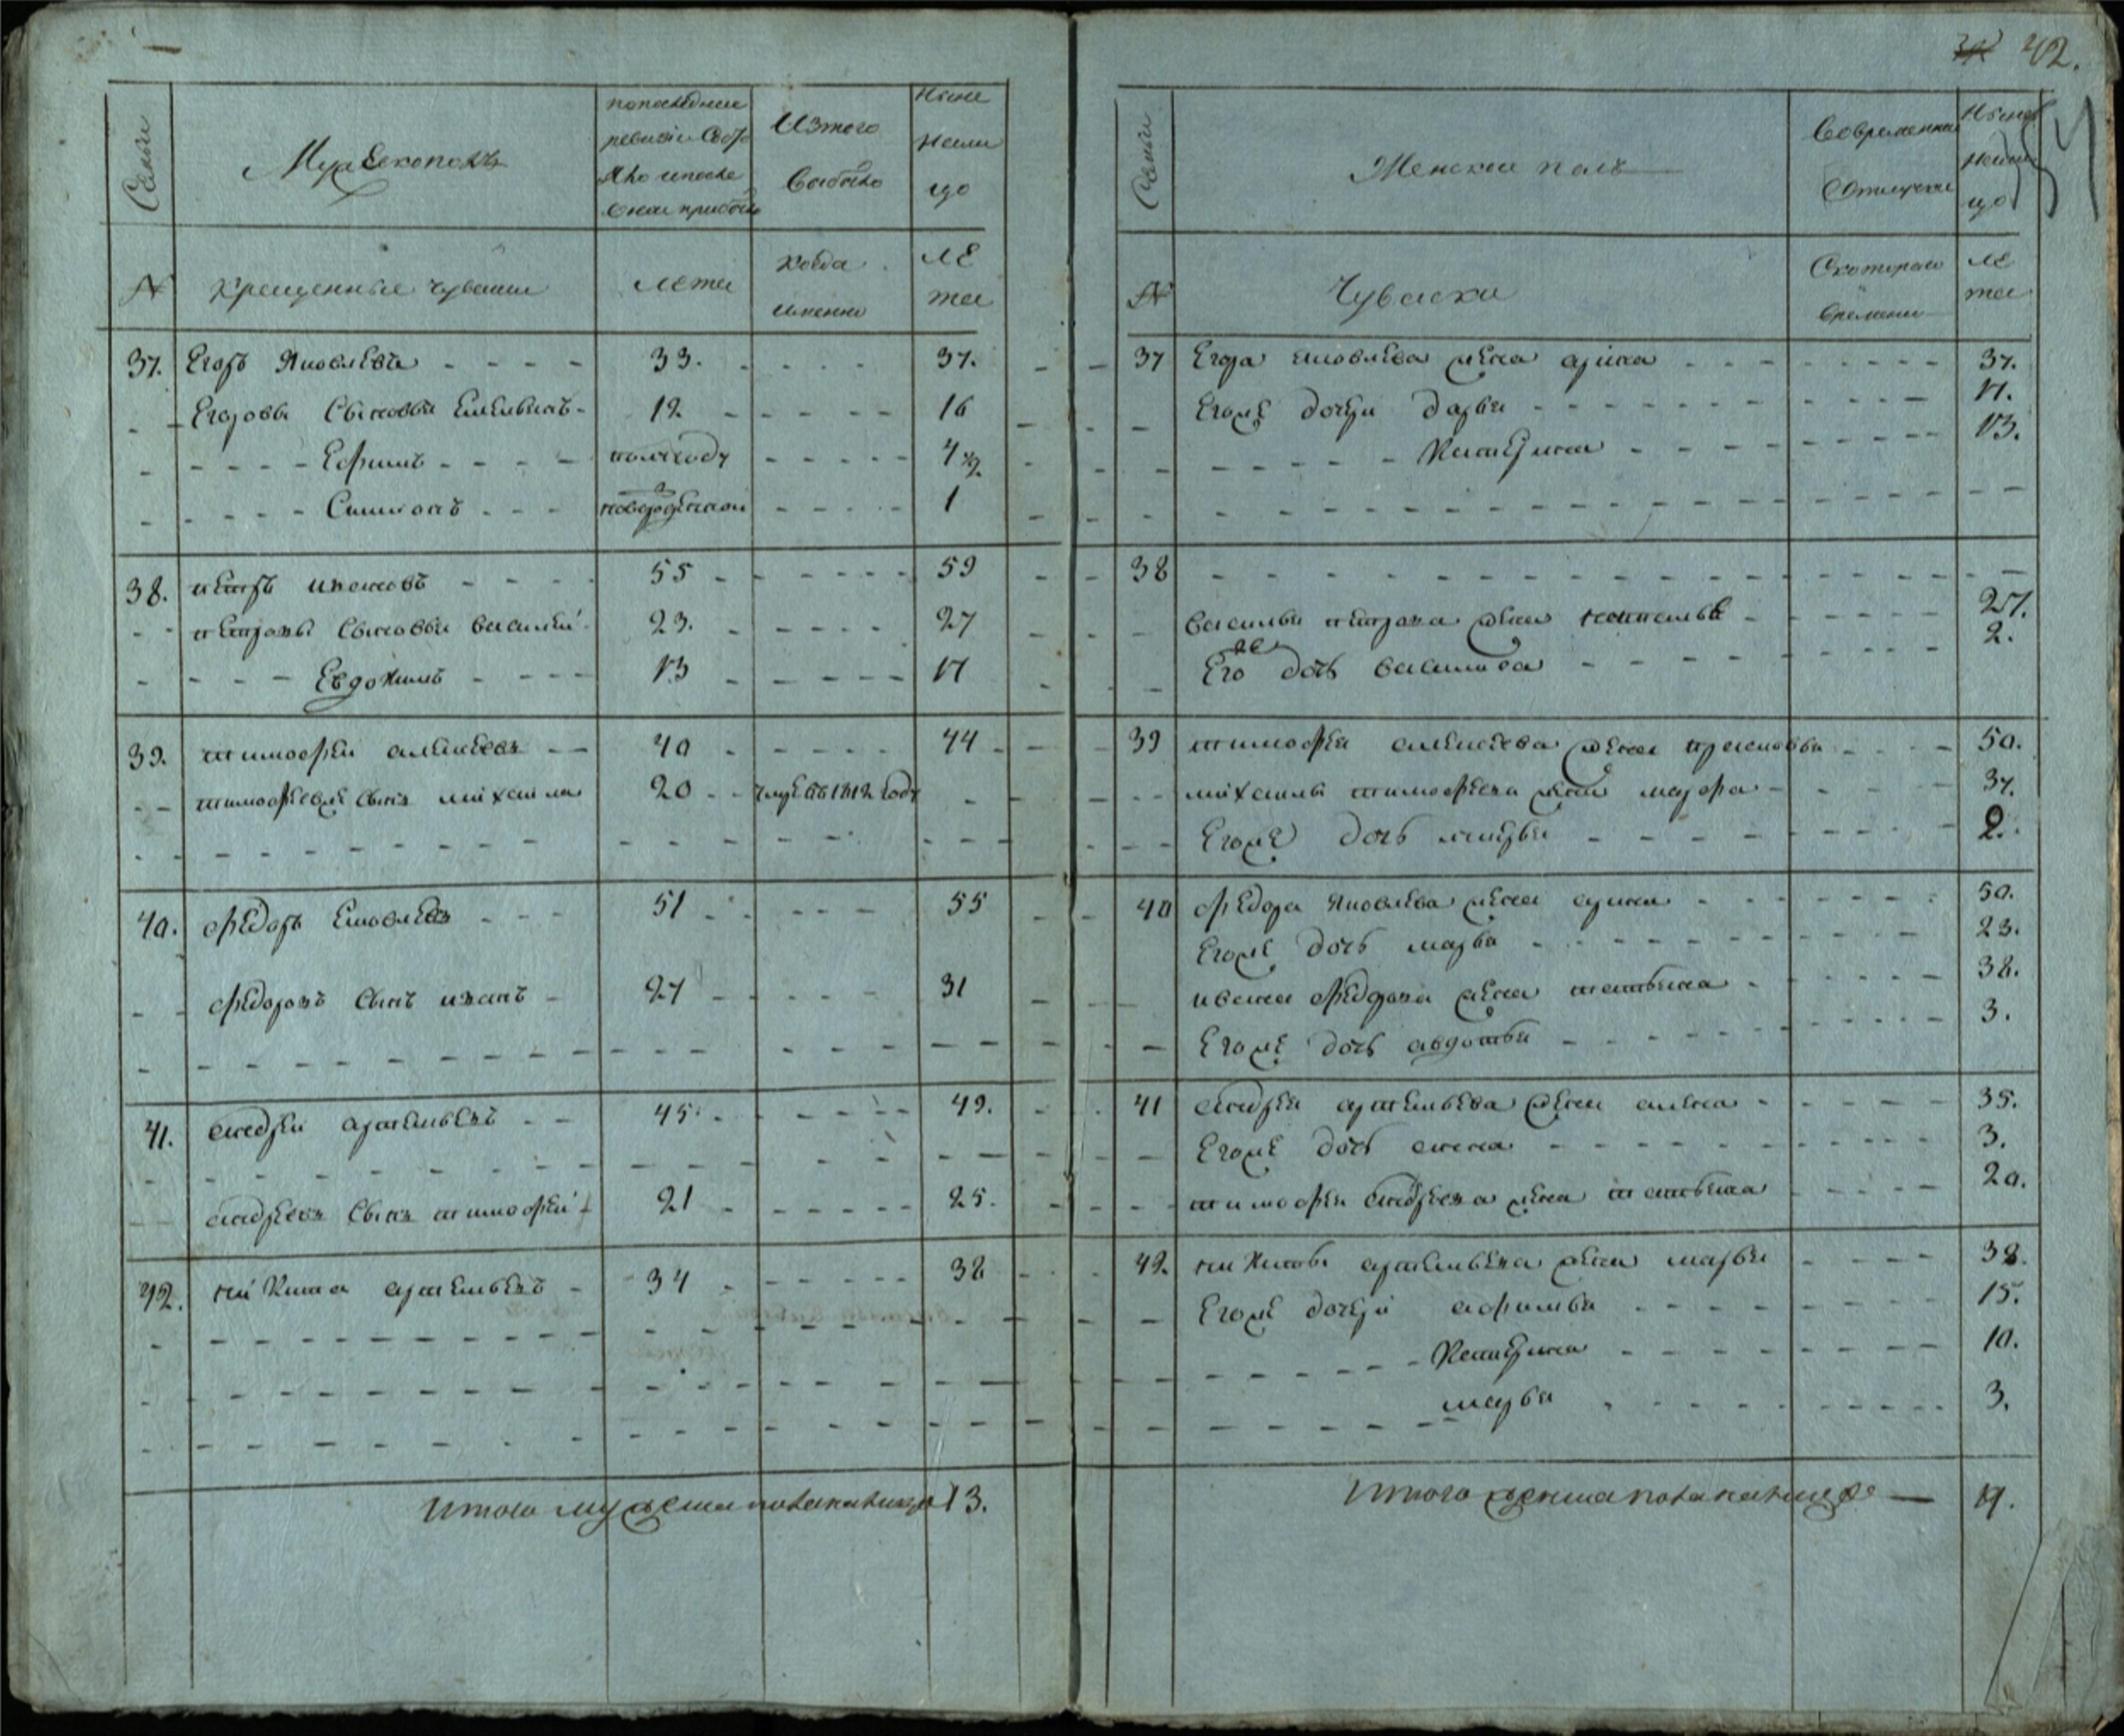 42.
Семьи
Мужеско полъ
по последней
ревизiи состо
яло и после
оной прибыло
Изтого
выбыло
Ныне
на ли
цо
№
крещенные чуваши
лета
когда
именно
ле
та
37. Егоръ Яковлевъ 33. 37.
Егоровы сыновья Емельянъ 12 16
Ефимъ полгоду 4 1/2
Семионъ новорожденной 1
38. петръ ивановъ 55 59
петровы сыновья василей 23. 27
Евдокимъ 13 17
39. тимофей алексеевъ 40 44
тимофеевъ сынъ михаила 20 умре въ 1812 году
40. федоръ Яковлевъ 51 55
федоровъ сынъ иванъ 27 31
41. андрей артемьевъ 45. 49.
андреевъ сынъ тимофей 21 25.
42. никита артемьевъ 34 38
Итого мужеска пола на лицо 13.
Семьи
Женской полъ
Во временной
отлучки
Ныне
на ли
цо
№
Чуваски
С котораго
времени
ле
та
37 Егора яковлева жена арина 37.
Егоже дочери дарья 17.
Катерина 13.
38
василья петрова жена наталья 27.
Его же дочь василиса 2.
39 тимофея алексеева жена прасковья 50.
михаилы тимофеева жена марфа 37.
Егоже дочь марья 2.
40 федора Яковлева жена арина 50.
Егоже дочь марья 23.
ивана федорова жена татьяна 38.
Егоже дочь авдотья 3.
41 андрея артемьева жена алена 35.
Егоже дочь анна 3.
тимофея андреева жена татьяна 20.
42. никиты артемьева жена марья 38.
Егоже дочери афимья 15.
Катерина 10.
марья 3.
Итого женска пола на лицо — 17.